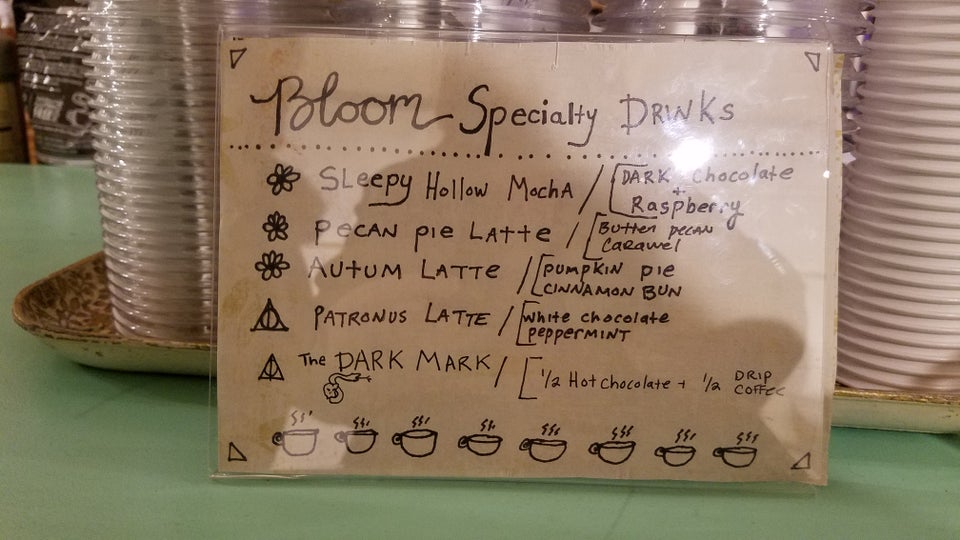 Bloom Specialty Drinks
Sleepy Hollow Mocha / [DARK chocolate
+
Raspberry
Pecan pie Latte / [Butter pecan
Caramel
Autum Latte / [Pumpkin pie
Cinnamon Bun
Patronus Latte / [white chocolate
peppermint
The DARK MARK / [1/2 Hot Chocolate + 1/2 DRIP
COFFEE